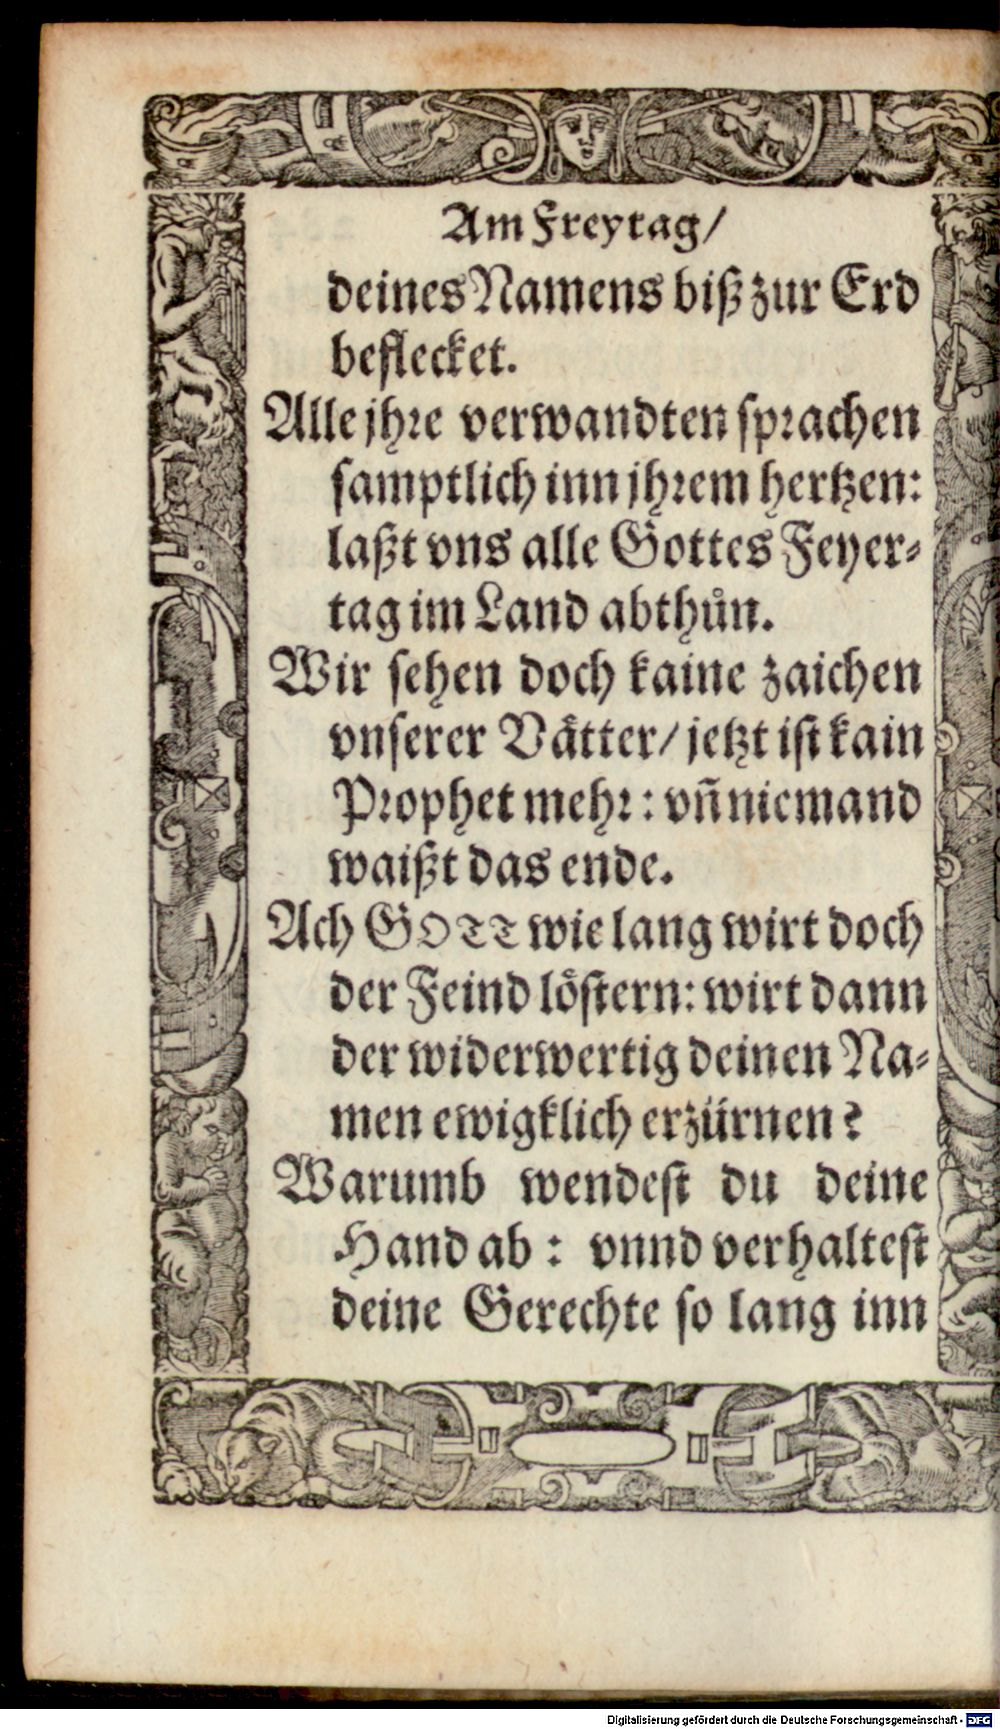 Am Freytag/
deines Namens biß zur Erd
beflecket.
Alle jhre verwandten sprachen
samptlich inn jhrem hertzen:
laßt vns alle Gottes Feyer⸗
tag im Land abthůn.
Wir sehen doch kaine zaichen
vnserer Vaͤtter/ jetzt ist kain
Prophet mehr: vn̄ niemand
waißt das ende.
Ach GOTT wie lang wirt doch
der Feind loͤstern: wirt dann
der widerwertig deinen Na⸗
men ewigklich erzürnen?
Warumb wendest du deine
Hand ab: vnnd verhaltest
deine Gerechte so lang inn
Digitalisierung gefördert durch die Deutsche Forschungsgemeinschaft - DFG